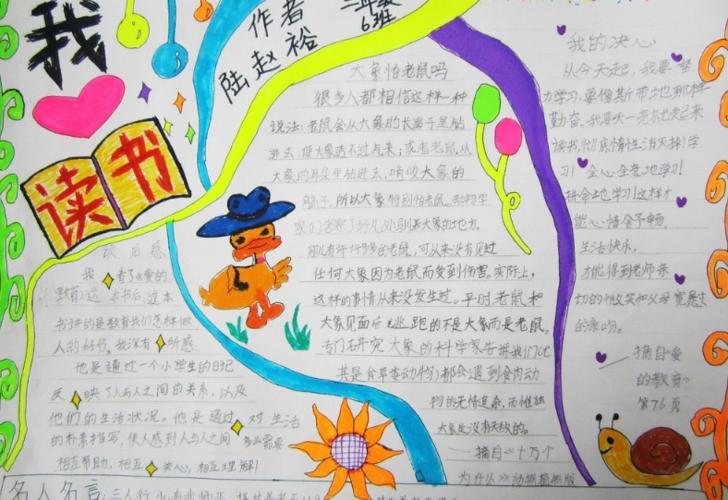 我
读书
作者
陆赵裕
三年级
6班
大象怕老鼠吗
很多人都相信这样一种
说法:老鼠会从大象的长鼻子里钻
进去,使大象透不过气来;或者老鼠从
大象的耳朵里钻进去,啃咬大象的
脑子,所以大象特别怕老鼠。动物学
家们考察了好几处驯养大象的地方,
那儿有许许多多的老鼠,可从来没有见过
任何大象因为老鼠而受到伤害。实际上,
这样的事情从来没发生过。平时老鼠和
大象见面后逃跑的不是大象而是老鼠。
专门研究大象的科学家告诉我们:
其是食草类动物们都会遇到食肉动
物的无情追杀,而惟独
大象是没有天敌的。
——摘自《十万个
为什么》动物植物版
我的决心
从今天起,我要
力学习,要像斯蒂地那样
勤奋,我要
读书
全心全意地学习!
拼命地学习!这样才
能心情舒畅
生活快乐。
才能得到老师亲
切的微笑和父母
的亲吻。
——摘自《爱
的教育》
第76页
读后感
我看了《爱的
教育》这本书后,这本
书讲的是教育我们怎样做
人的
他是通过一个小学生的日记
反映了人与人之间的关系,以及
他们的生活状况。他是通过对生活
的朴素描写,使人感到人与人之间多么需要
相互帮助,相互关心,相互理解!
名人名言:三人行,